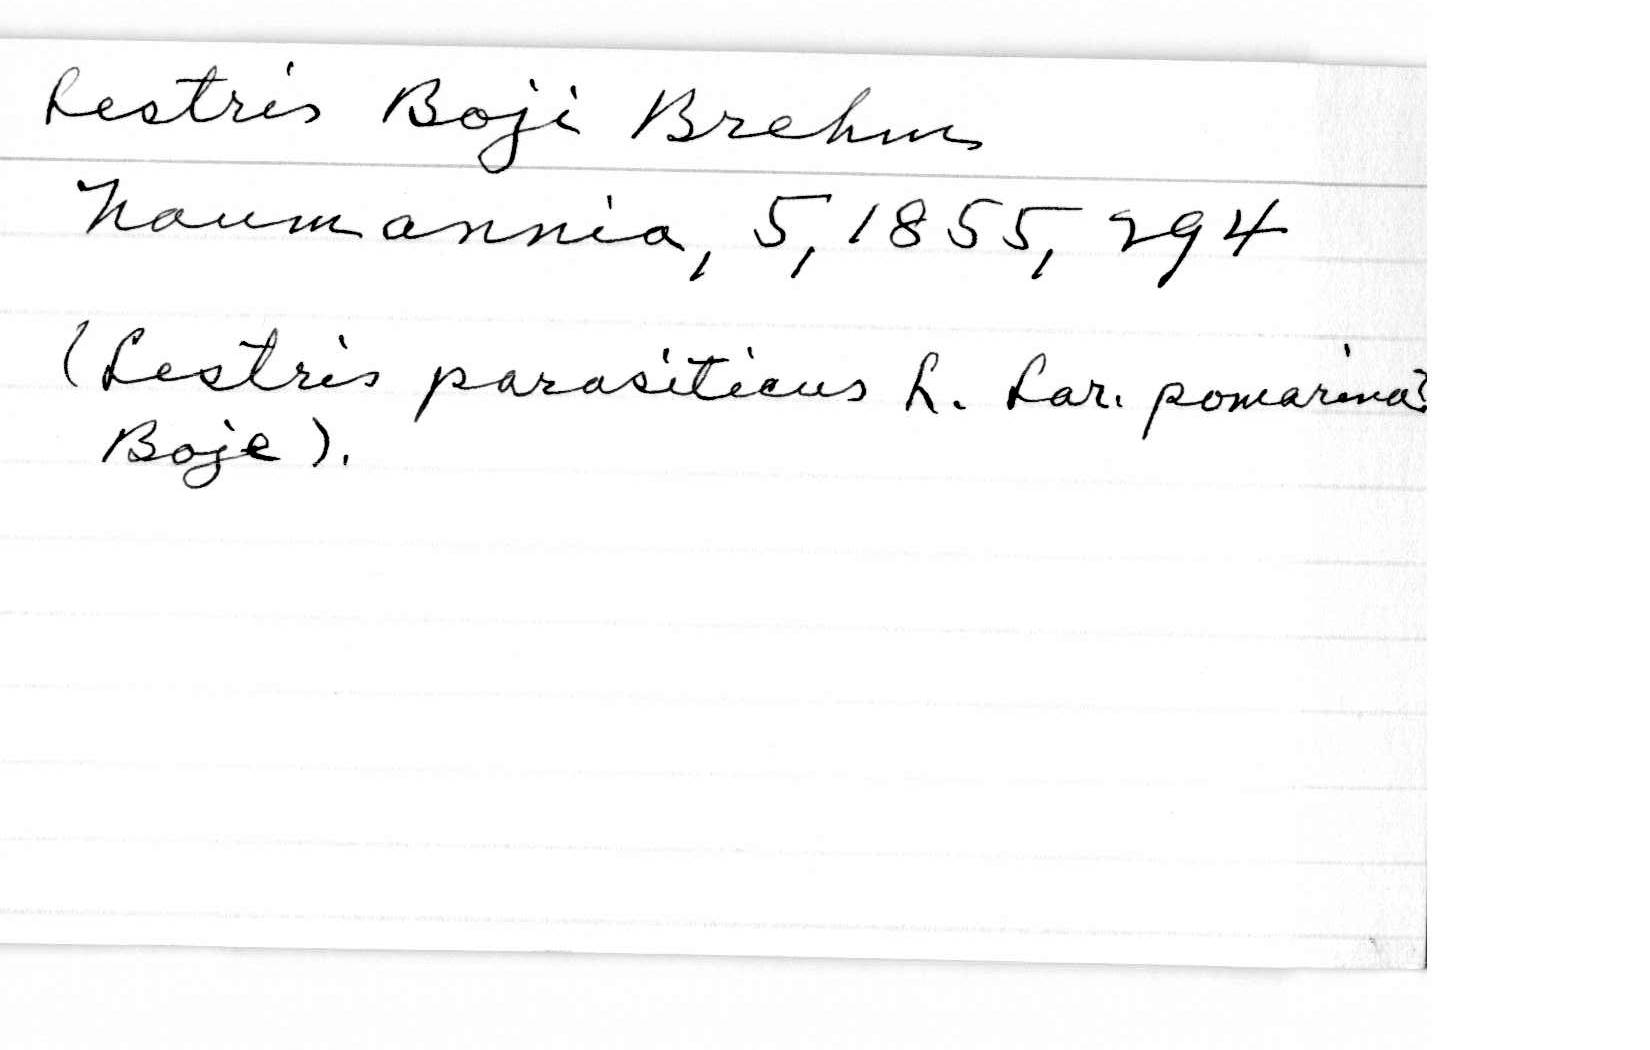 Lestris Boji Brehm
Naumannia, 5, 1855, 294
(Lestris parasiticus L. Lar. pomarina?
Boje).